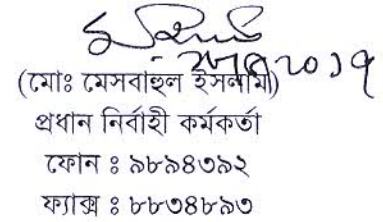 (মোঃ মেসবাহুল ইসলাম)
প্রধান নির্বাহী কর্মকর্তা
ফোন ঃ ৯৮৯৪৩৯২
ফ্যাক্স ঃ ৮৮৩৪৮৯৩